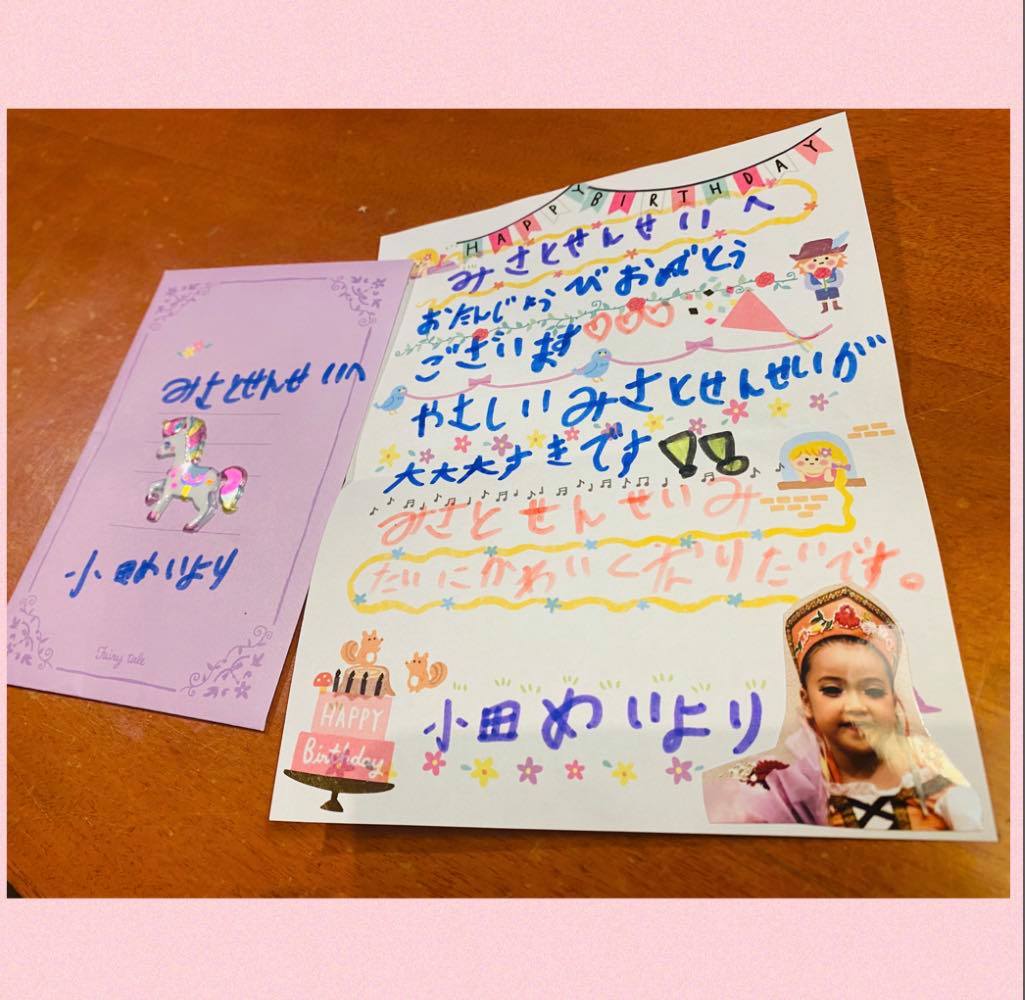 みさとせんせいへ
小田めいより
Fairy tale
HAPPY BIRTHDAY
みさとせんせいへ
おたんじょうびおめでとう
ございます♡♡♡
やさしいみさとせんせいが
大大大すきです!!
みさとせんせいみ
たいにかわいくなりたいです。
HAPPY
Birthday
小田めいより